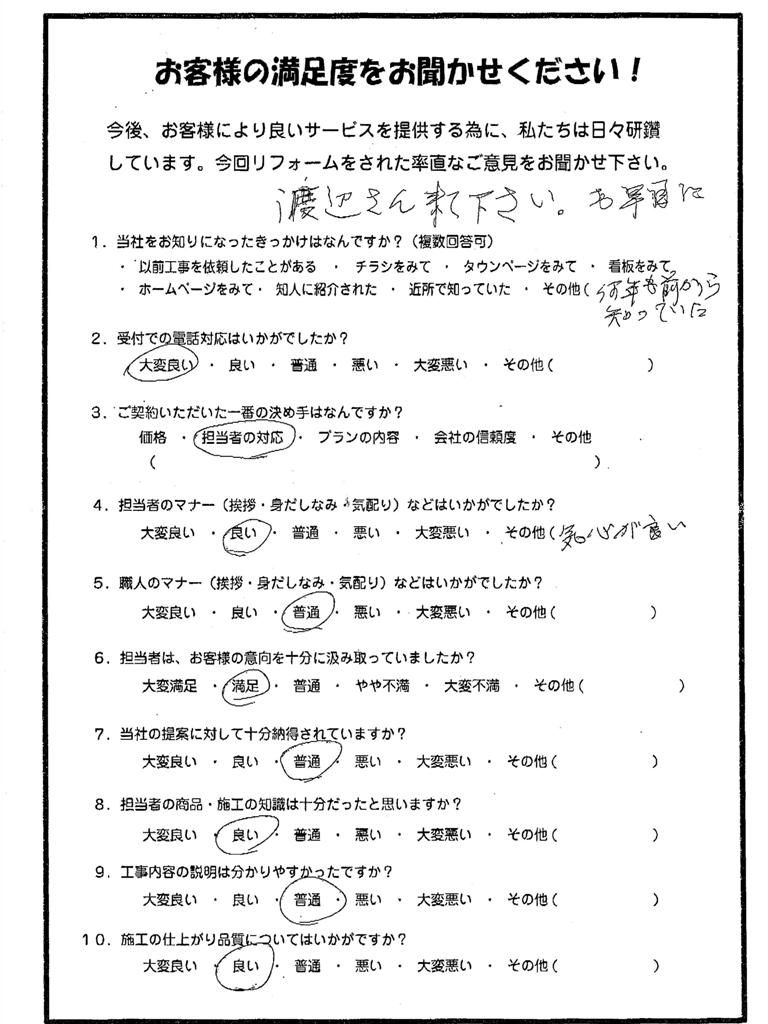 お客様の満足度をお聞かせください！
今後、お客様により良いサービスを提供する為に、私たちは日々研鑽
しています。今回リフォームをされた率直なご意見をお聞かせ下さい。
渡辺さん来て下さい。お早目に
１．当社をお知りになったきっかけはなんですか？（複数回答可）
・ 以前工事を依頼したことがある ・ チラシをみて ・ タウンページをみて ・ 看板をみて
・ ホームページをみて・ 知人に紹介された ・ 近所で知っていた ・ その他( 何年も前から
知っていた
２．受付での電話対応はいかがでしたか？
大変良い ・ 良い ・ 普通 ・ 悪い ・ 大変悪い ・ その他( )
３．ご契約いただいた一番の決め手はなんですか？
価格 ・ 担当者の対応 ・ プランの内容 ・ 会社の信頼度 ・ その他
( )
４．担当者のマナー（挨拶・身だしなみ・気配り）などはいかがでしたか？
大変良い ・ 良い ・ 普通 ・ 悪い ・ 大変悪い ・ その他( 心が良い
５．職人のマナー（挨拶・身だしなみ・気配り）などはいかがでしたか？
大変良い ・ 良い ・ 普通 ・ 悪い ・ 大変悪い ・ その他( )
６．担当者は、お客様の意向を十分に汲み取っていましたか？
大変満足 ・ 満足 ・ 普通 ・ やや不満 ・ 大変不満 ・ その他( )
７．当社の提案に対して十分納得されていますか？
大変良い ・ 良い ・ 普通 ・ 悪い ・ 大変悪い ・ その他( )
８．担当者の商品・施工の知識は十分だったと思いますか？
大変良い ・ 良い ・ 普通 ・ 悪い ・ 大変悪い ・ その他( )
９．工事内容の説明は分かりやすかったですか？
大変良い ・ 良い ・ 普通 ・ 悪い ・ 大変悪い ・ その他( )
１０．施工の仕上がり品質についてはいかがですか？
大変良い ・ 良い ・ 普通 ・ 悪い ・ 大変悪い ・ その他( )